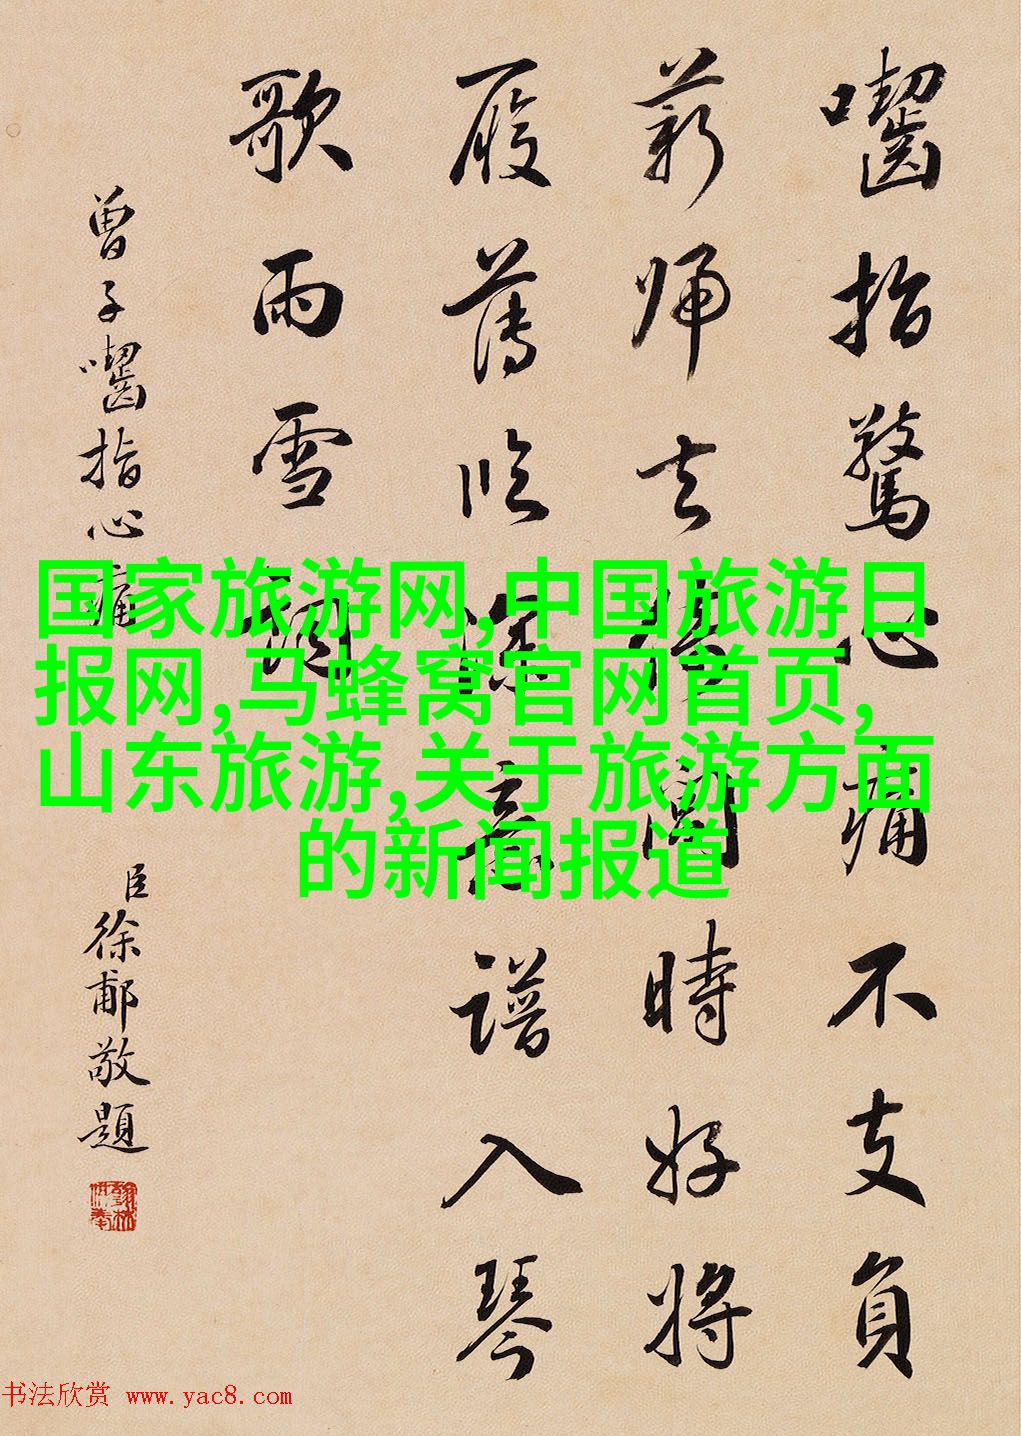 囓指驚心痛不支負
薪歸去倚閭時好將
履薄臨深意譜入琴
歌雨雪詞
曾子囓指心痛
臣徐郙敬題
国家旅游网,中国旅游日
报网,马蜂窝官网首页,
山东旅游,关于旅游方面
的新闻报道
书法欣赏 www.yac8.com